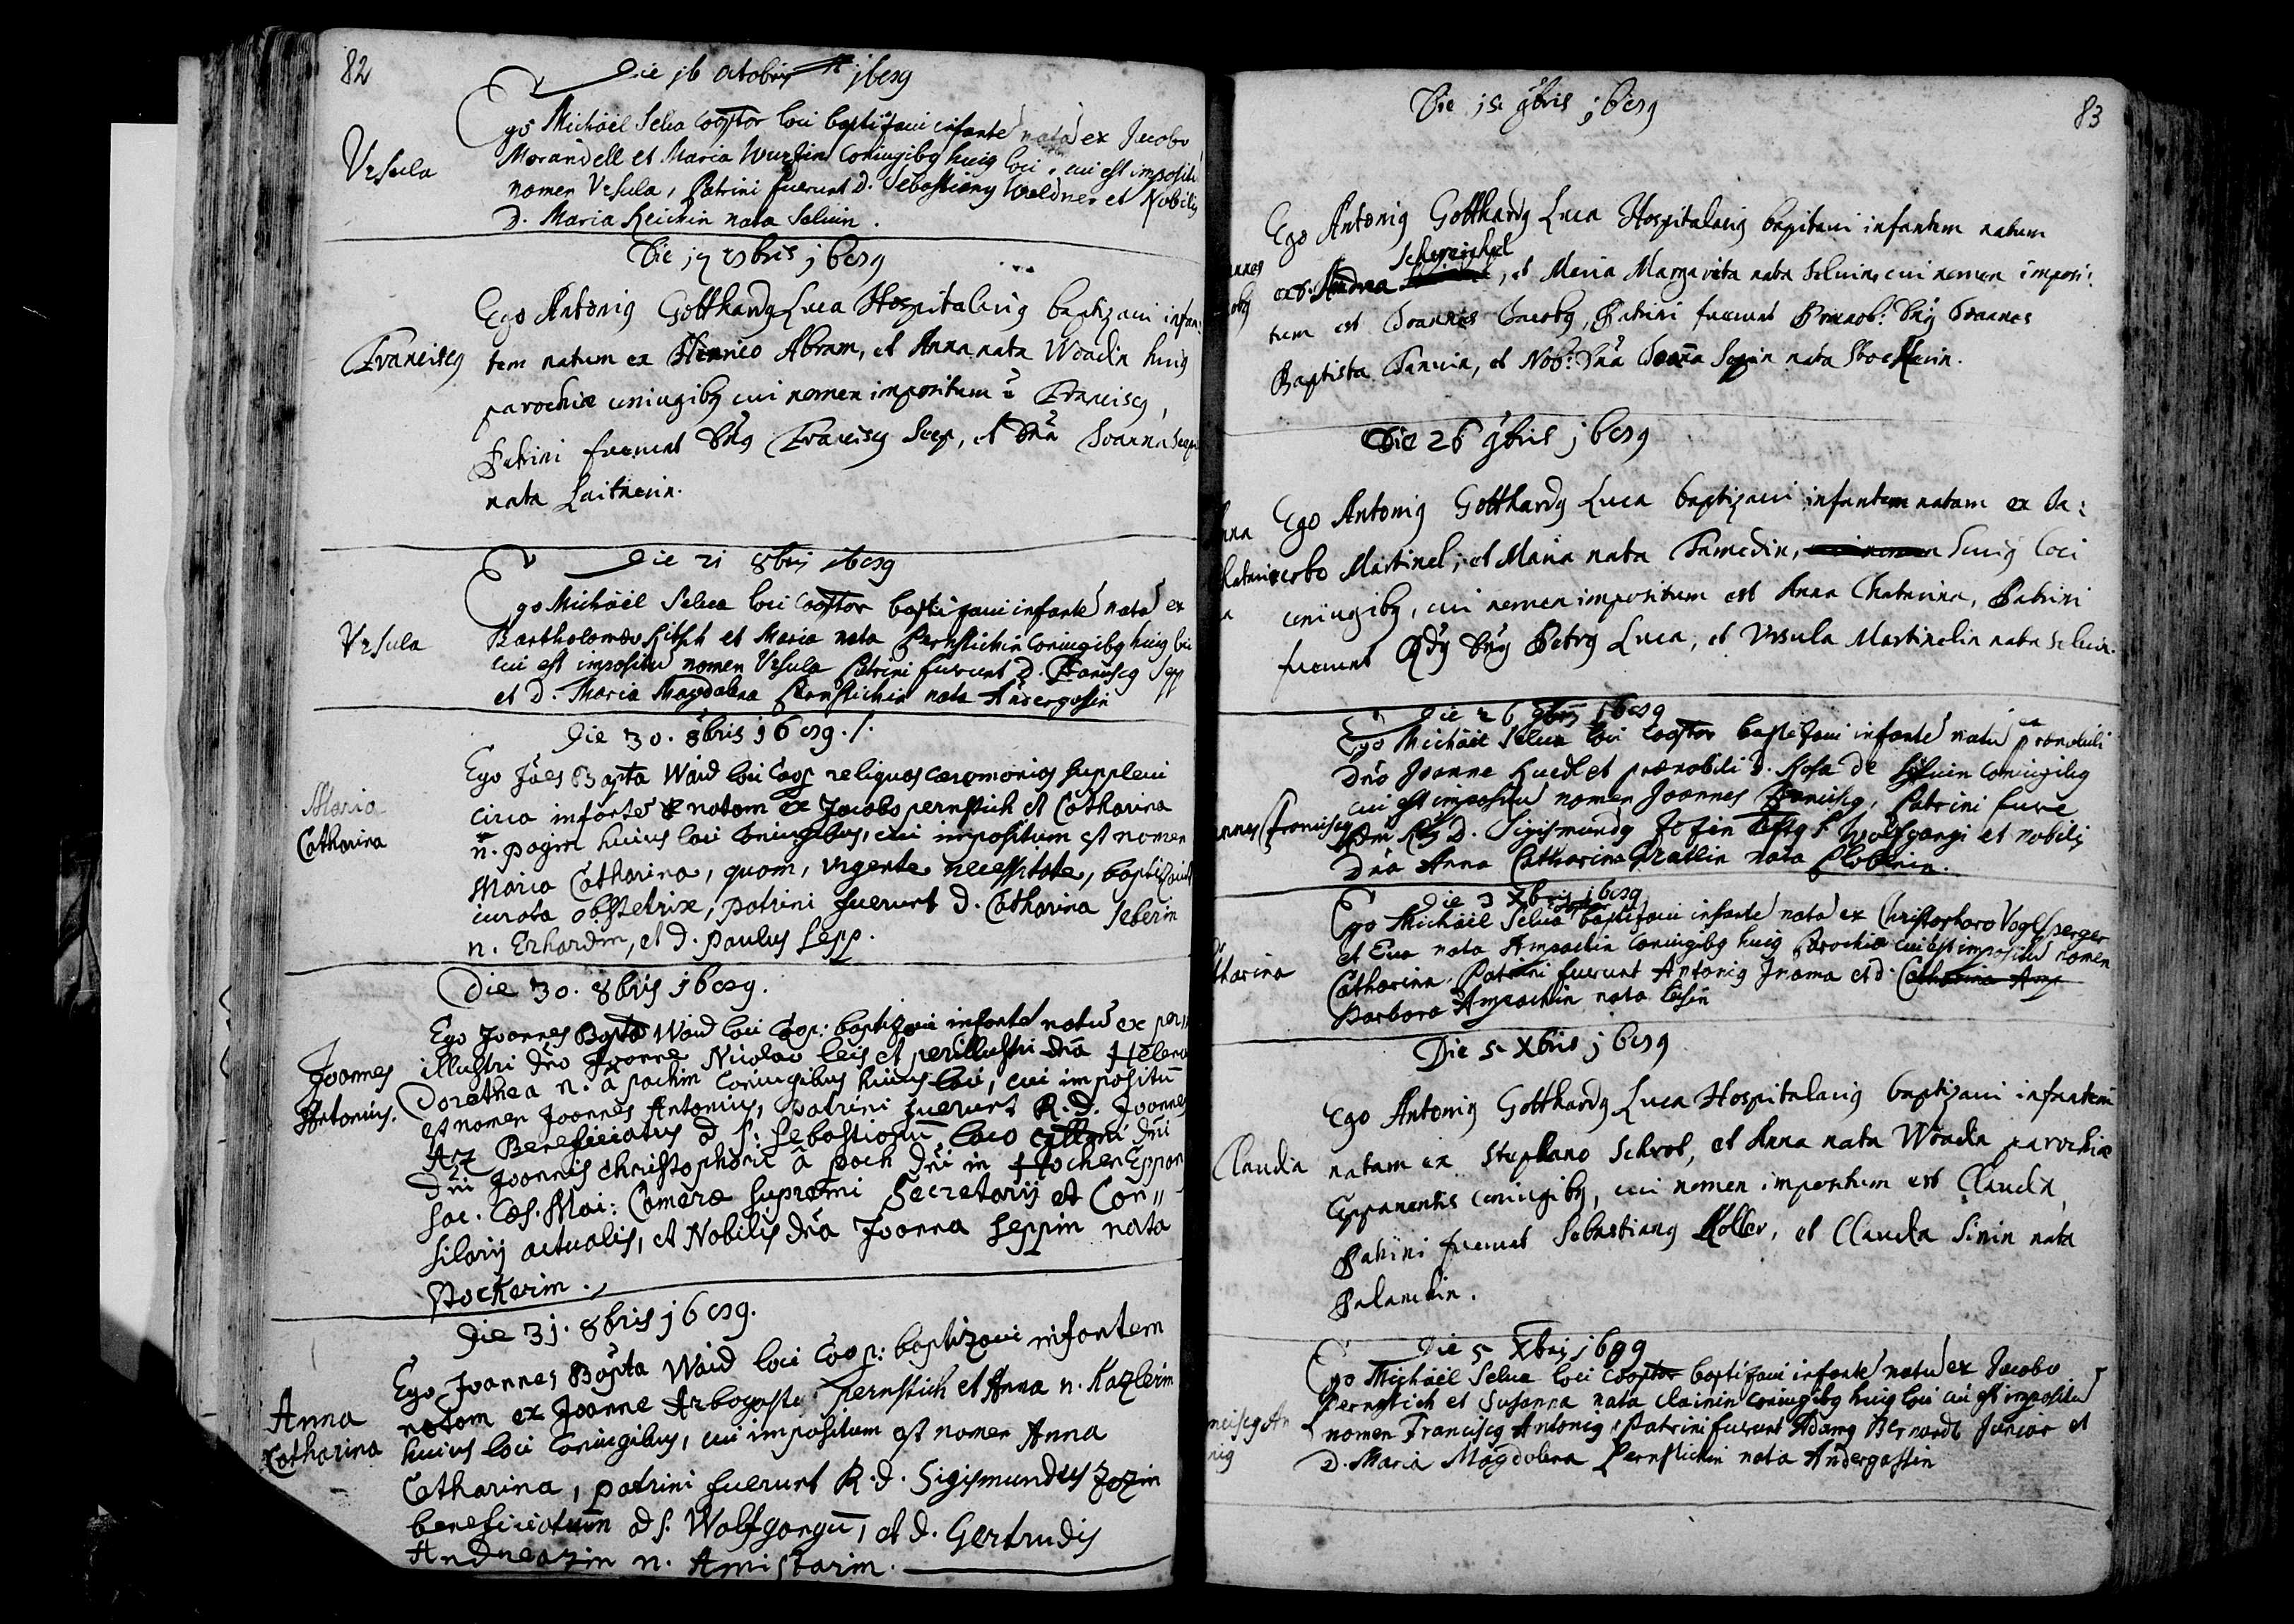 82
Die 16 octobris 1689
Ursula
Ego Michaël Selva Cooptor loci baptizavi infante nata ex Jacobo
Morandell et Maria Wurzin Coniugibg huig loci, cui est impositu
nomen Ursula, Patrini fuerunt D. Sebastiang Waldner et Nobilis
D. Maria Reichin nata Selvin.
Die 17 8bris 1689
Franciscg
Ego Antonig Gotthardg Luca Hospitalarig baptizavi infan:
tem natum ex Henrico Abram, et Anna nata Woadin huig
parochiæ coniugibg cui nomen impositum ẽ Franciscg,
Patrini fuerunt Dñg Franciscg Sepp, et Dña Joanna Seppin
nata
Die 21 8bris 1689
Ursula
Ego Michaël Selva loci Cooptor baptizavi infante nata ex
Bartholomæo et Maria nata Pernstichin Coniugibg huig loci
cui est impositu nomen Ursula Patrini fuerunt D. Franciscg Sepp
et D. Maria Magdalena Pernstichin nata Andergassin
Die 30. 8bris 1689.
Maria
Catharina
Ego Joães Bapta Waid loci Coop reliquas cæremonias supplevi
circa infante natam ex Jacobo pernstich et Catharina
n. pagin huius loci Coniugibus, cui impositum est nomen
Maria Catharina, quam, urgente necessitate, baptizavit
iurata obstetrix, patrini fuerunt D. Catharina
n. Erhardin, et D. paulus Sepp.
Die 30. 8bris 1689.
Joannes
Antonius.
Ego Joannes Bapta Waid loci Coop: baptizavi infante natu ex per
illustri dño Joanne Nicolao leis et perillustri dña Helena
Dorothea n. à pachin Coniugibus huius loci, cui impositu
est nomen Joannes Antonius, patrini fuerunt R. D. Joannes
Arz Beneficiatus ad S: Sebastianu, loco dñi
dñi Joannis Christophori à pach dñi in Hochen Eppan
Sac. Cæs. Mai: Cameræ supremi Secretarij et Con//
siliarij actualis, et Nobilis dña Joanna Seppin nata
Stockerin.
Die 31. 8bris 1689.
Anna
Catharina
Ego Joannes Bapta Waid loci Coop: baptizavi infantem
natam ex Joanne Arbogasto pernstich et Anna n. Kazlerin
huius loci Coniugibus, cui impositum est nomen Anna
Catharina, patrini fuerunt R. d. Sigismundus Zozin
beneficiatum ad S. Wolfgangu, et d. Gertrudis
Andreazin n. Amistarin.
83
Die 15 9bris 1689
Ego Antonig Gotthardg Luca Hospitalarig baptizavi infantem natum
Andrea et Maria Margarita nata Selvin, cui nomen imposi:
tum est Joannes Jacobg, Patrini fuerunt Prænob: Dñg Joannes
Baptista, et Nob: Dña Joaña Seppin nata Stockerin.
Die 26 9bris 1689
Ego Antonig Gotthardg Luca baptizavi infantem natam ex Ja:
cobo Martinel, et Maria nata Tamedin, huig loci
coniugibg, cui nomen impositum est Anna Chatarina, Patrini
fuerunt Dñg Petrg Luca, et Ursula Martinelin nata Selvin.
Die 26 9bris 1689
Ego Michaël Selva loci Cooptor baptizavi infante natu ex prænobili
Dño Joanne et prænobili D. Rosa de Selvin Coniugibg
cui est impositu nomen Joannes Franciscg, Patrini fuere
D. Sigismundg Zozin S. Wolfgangi et nobilis
Dña Anna Catharina nata
Die 3 Xbris 1689
tharina
Ego Michaël Selva Cooptor baptizavi infante nata ex Christophoro Voglsperger
et Eva nata Ampachin Coniugibg huig Parochiæ cui est impositu nomen
Catharina. Patrini fuerunt Antonig Inama et d.
Barbara Ampachin nata
Die 5 Xbris 1689
Claudia
Ego Antonig Gotthardg Luca Hospitalarig baptizavi infantem
natam ex Stephano Schrot, et Anna nata Woadin parochiæ
Eppanensis coniugibg, cui nomen impositum est Claudia,
Patrini fuerunt Sebastiang Koller, et Claudia Sinin nata
Die 5 Xbris 1689
Ego Michaël Selva loci Cooptor baptizavi infante natu ex Jacobo
Pernstich et Susanna nata Clainin Coniugibg huig loci cui est impositu
nomen Franciscg Antonig, Patrini fuerunt Adamg Bernardt Junior et
D. Maria Magdalena Pernstichin nata Andergassin